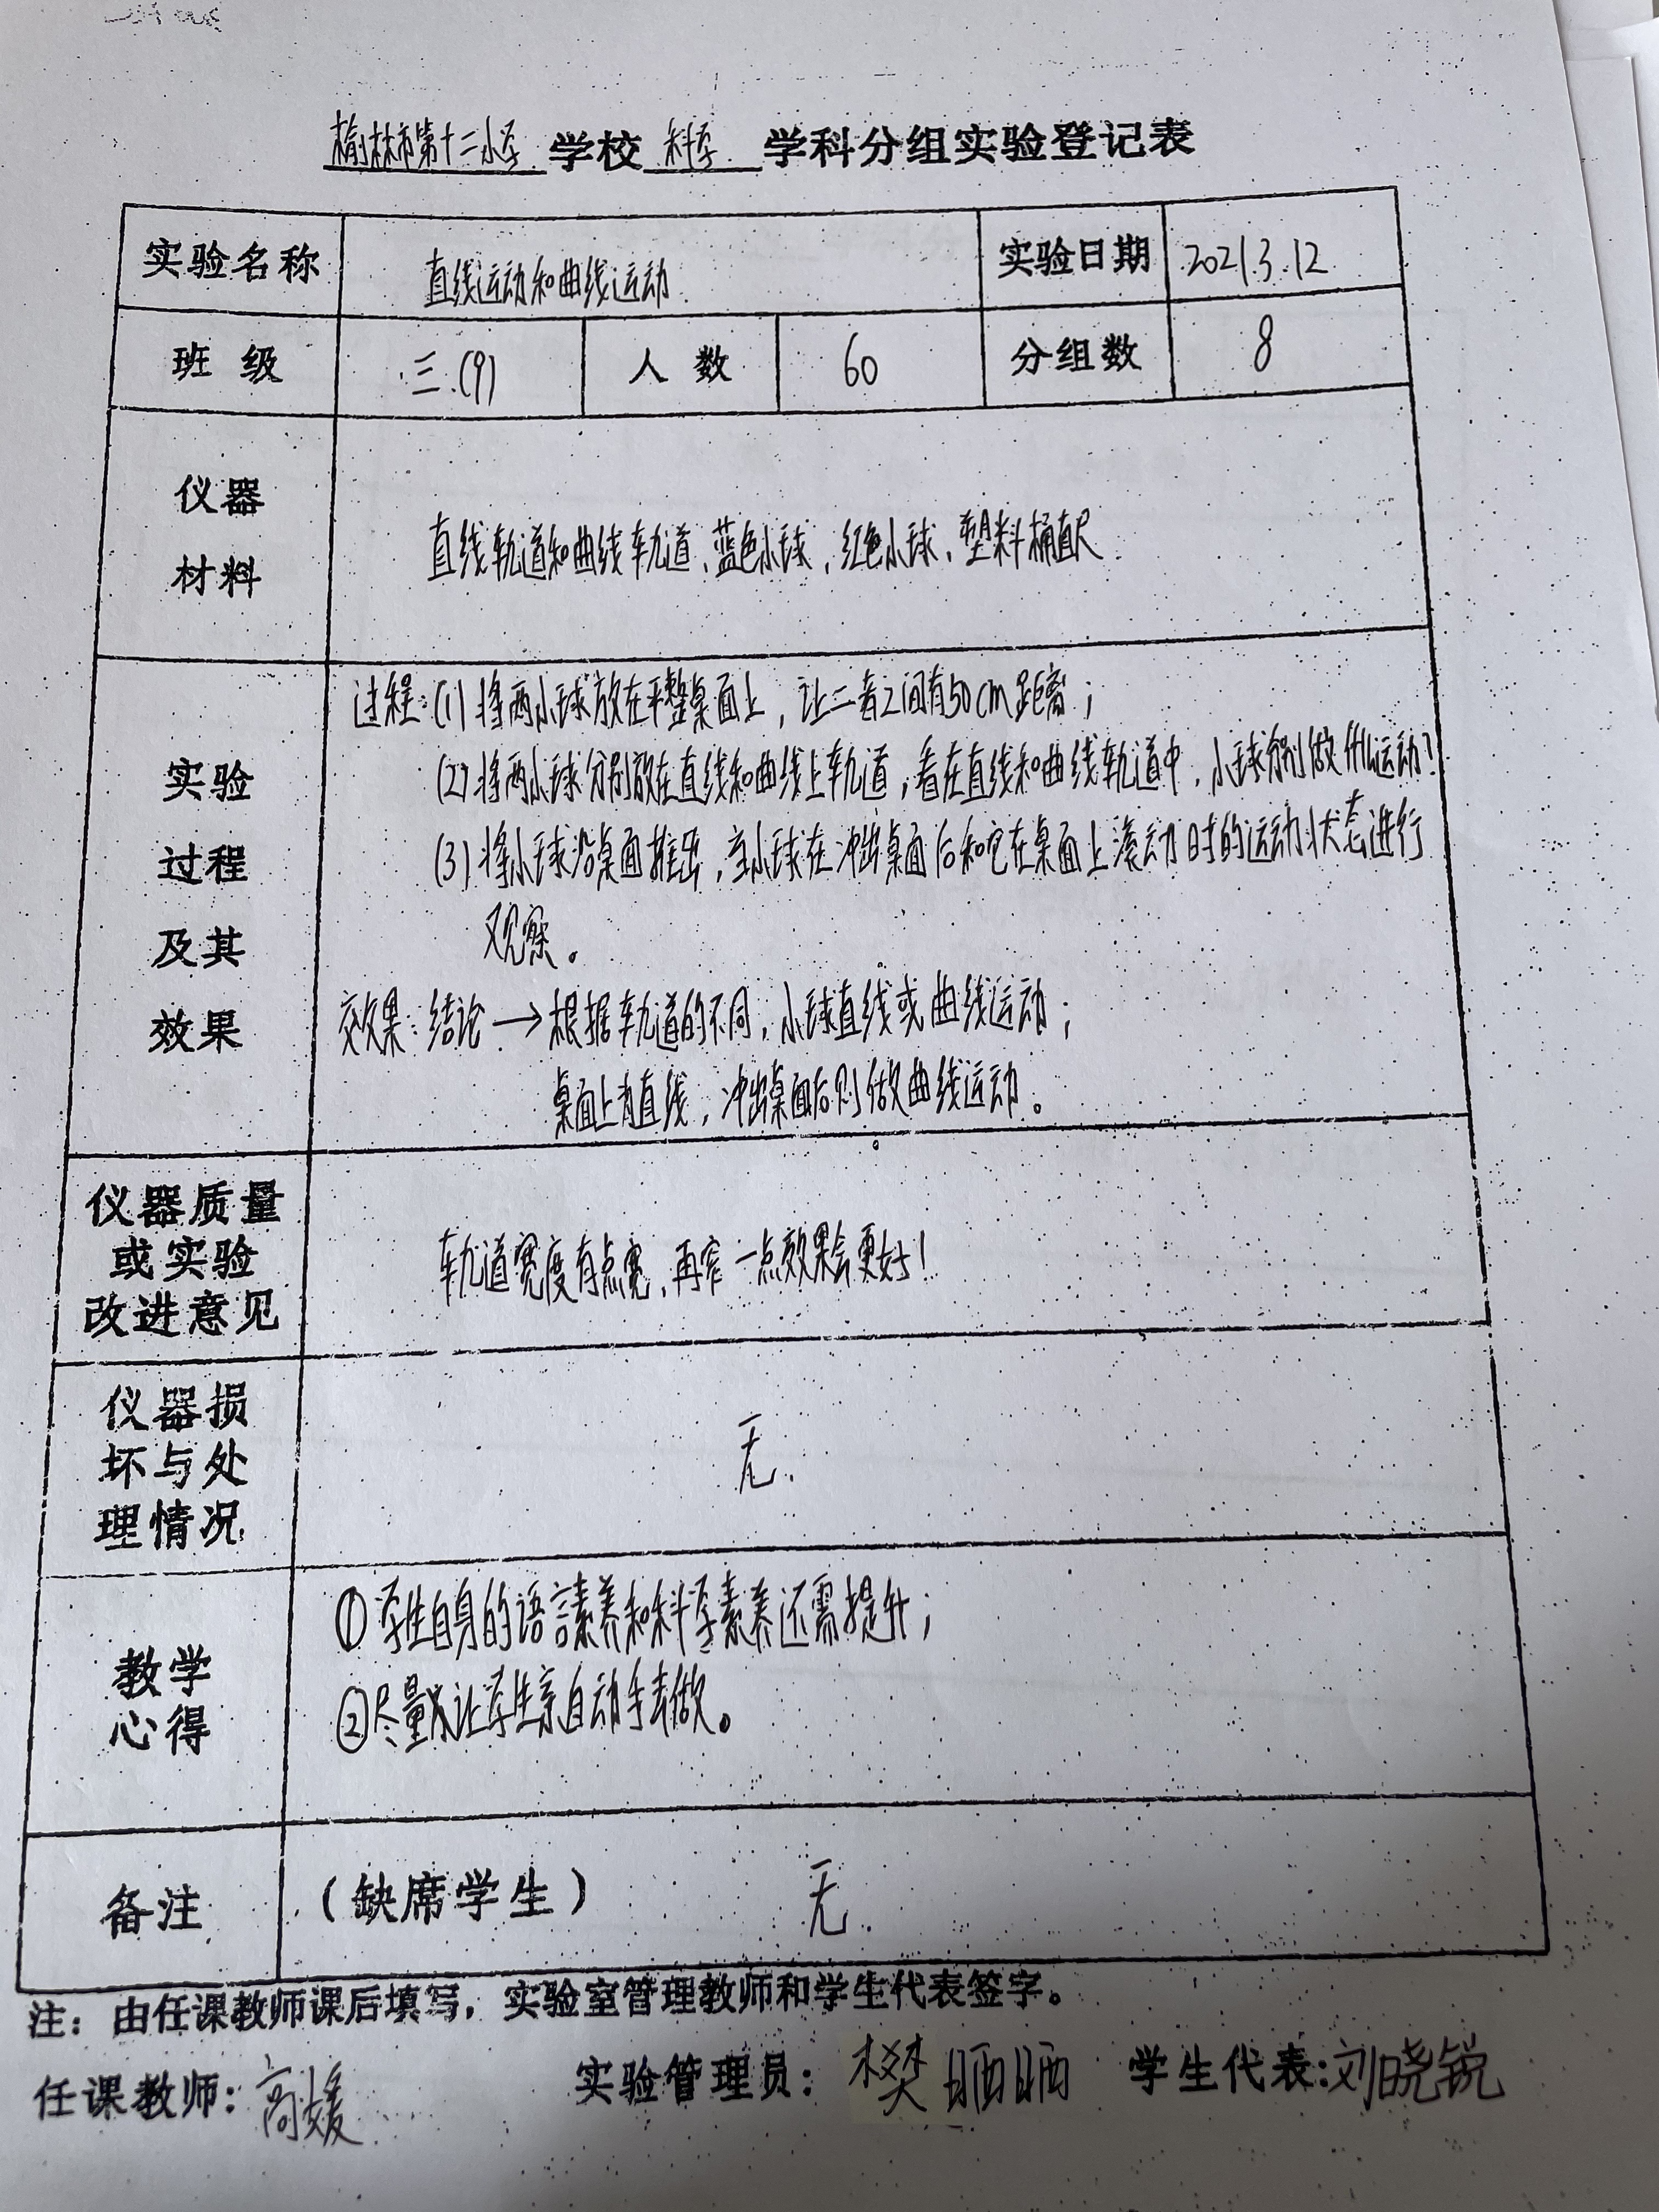 榆林市第十二小学 学校 科学 学科分组实验登记表
实验名称 直线运动和曲线运动. 实验日期 2021.3.12
班 级 三.(9) 人 数 60 分组数 8
仪器
材料
直线轨道和曲线轨道、蓝色小球,红色小球、塑料桶直尺.
实验
过程
及其
效果
过程:(1)将两小球放在平整桌面上,让二者之间有50cm距离;
(2)将两小球分别放在直线和曲线上轨道,看在直线和曲线轨道中,小球分别做什么运动?
(3)将小球沿桌面推出,对小球在冲出桌面后和它在桌面上滚动时的运动状态进行
观察。
效果:结论→根据轨道的不同,小球直线或曲线运动;
桌面上为直线,冲出桌面后则做曲线运动。
仪器质量
或实验
改进意见
轨道宽度有点宽,再窄一点效果会更好!
仪器损
坏与处
理情况
无.
教学
心得
①学生自身的语言素养和科学素养还需提升;
②尽量让学生亲自动手去做。
备注 (缺席学生) 无.
注:由任课教师课后填写,实验室管理教师和学生代表签字。
任课教师:高媛 实验管理员:樊晒晒 学生代表:刘晓锐